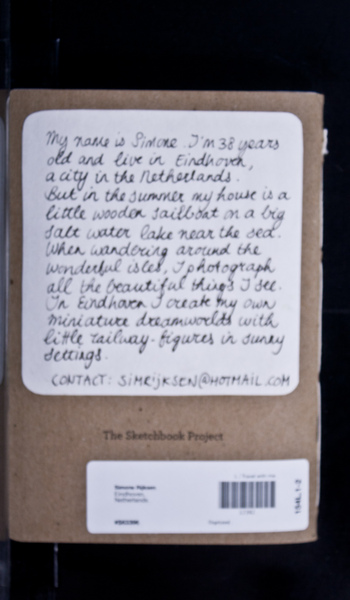 My name is Simone. I'm 38 years
old and live in Eindhoven,
a city in the Netherlands.
But in the summer my house is a
little wooden sailboat on a big
salt water lake near the sea.
When wandering around the
wonderful isles, I photograph
all the beautiful things I see.
In Eindhoven I create my own
miniature dreamworlds with
little railway-figures in sunny
settings.
CONTACT: SIMRIJKSEN@HOTMAIL.COM
The Sketchbook Project
Simone Rijksen
Eindhoven,
Netherlands